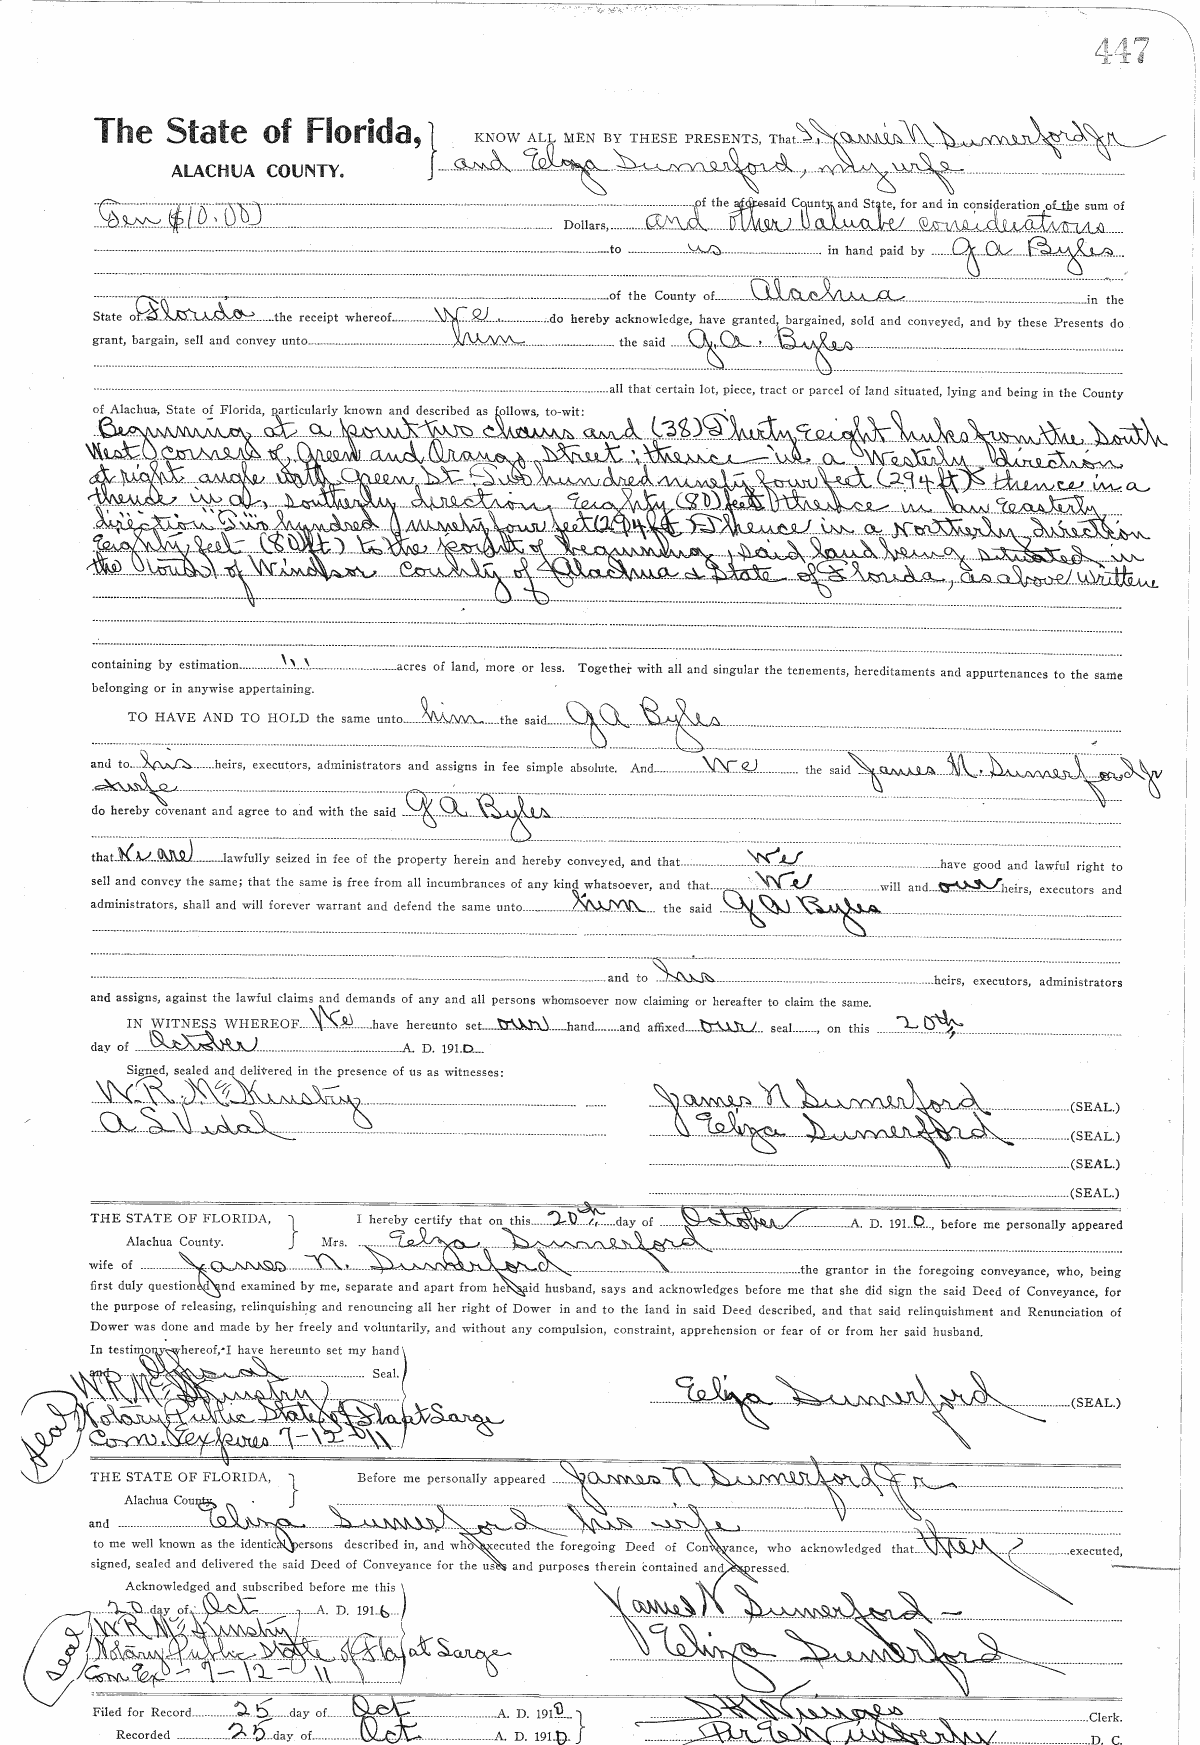 447
The State of Florida,
ALACHUA COUNTY.
KNOW ALL MEN BY THESE PRESENTS, That I, James N Sumerford Jr
and Eliza Sumerford, my wife
of the aforesaid County and State, for and in consideration of the sum of
Ten ($10.00) Dollars, and other Valuabe considerations
to us in hand paid by G A Byles
of the County of Alachua in the
State of Florida the receipt whereof We do hereby acknowledge, have granted, bargained, sold and conveyed, and by these Presents do
grant, bargain, sell and convey unto him the said G.A. Byles
all that certain lot, piece, tract or parcel of land situated, lying and being in the County
of Alachua, State of Florida, particularly known and described as follows, to-wit:
Beginning at a point two chains and (38) Thirty Eeight links from the South
West corners of Green and Orange Street; thence in a Westerly direction
at right angle with Green St. Two hundred ninety four feet (294 ft) thence in a
thence in a southerly direction Eeighty (80) feet thence in an Easterly
direction Two hundred ninety four feet (294 ft) Thence in a Northerly direction
Eeighty feet (80 ft) to the point of beginning, said land being situated in
the Town of Windsor County of Alachua & State of Florida, as above written
containing by estimation " ' acres of land, more or less. Together with all and singular the tenements, hereditaments and appurtenances to the same
belonging or in anywise appertaining.
TO HAVE AND TO HOLD the same unto him the said G A Byles
and to his heirs, executors, administrators and assigns in fee simple absolute. And We the said James N. Sumerford Jr
& wife
do hereby covenant and agree to and with the said G A Byles
that We are lawfully seized in fee of the property herein and hereby conveyed, and that We have good and lawful right to
sell and convey the same; that the same is free from all incumbrances of any kind whatsoever, and that We will and our heirs, executors and
administrators, shall and will forever warrant and defend the same unto him the said G A Byles
and to his heirs, executors, administrators
and assigns, against the lawful claims and demands of any and all persons whomsoever now claiming or hereafter to claim the same.
IN WITNESS WHEREOF We have hereunto set our hand and affixed our seal, on this 20th
day of October A. D. 1910
Signed, sealed and delivered in the presence of us as witnesses:
W.R. McKinstry James N Sumerford (SEAL.)
A S Vidal Eliza Sumerford (SEAL.)
(SEAL.)
(SEAL.)
THE STATE OF FLORIDA, I hereby certify that on this 20th day of October A. D. 1910, before me personally appeared
Alachua County. Mrs. Eelza Sumerford
wife of James N. Sumerford the grantor in the foregoing conveyance, who, being
first duly questioned and examined by me, separate and apart from her said husband, says and acknowledges before me that she did sign the said Deed of Conveyance, for
the purpose of releasing, relinquishing and renouncing all her right of Dower in and to the land in said Deed described, and that said relinquishment and Renunciation of
Dower was done and made by her freely and voluntarily, and without any compulsion, constraint, apprehension or fear of or from her said husband.
In testimony whereof, I have hereunto set my hand
and Official Seal.
W R McKinstry Eeliza Sumerford (SEAL.)
Notary Public State of Fla at Large
Com. Expires 7-12-11
Seal
THE STATE OF FLORIDA, Before me personally appeared James N Sumerford Jr
Alachua County.
and Eliza Sumerford his wife
to me well known as the identical persons described in, and who executed the foregoing Deed of Conveyance, who acknowledged that they executed,
signed, sealed and delivered the said Deed of Conveyance for the uses and purposes therein contained and expressed.
Acknowledged and subscribed before me this
20 day of Oct A. D. 1916 James N Sumerford
W R McKinstry Eeliza Sumerford
Notary Public State of Fla at Large
Com Ex - 7-12-11
Seal
Filed for Record 25 day of Oct A. D. 1910 S H Wienges Clerk.
Recorded 25 day of Oct A. D. 1910 Per E Wimberly D. C.